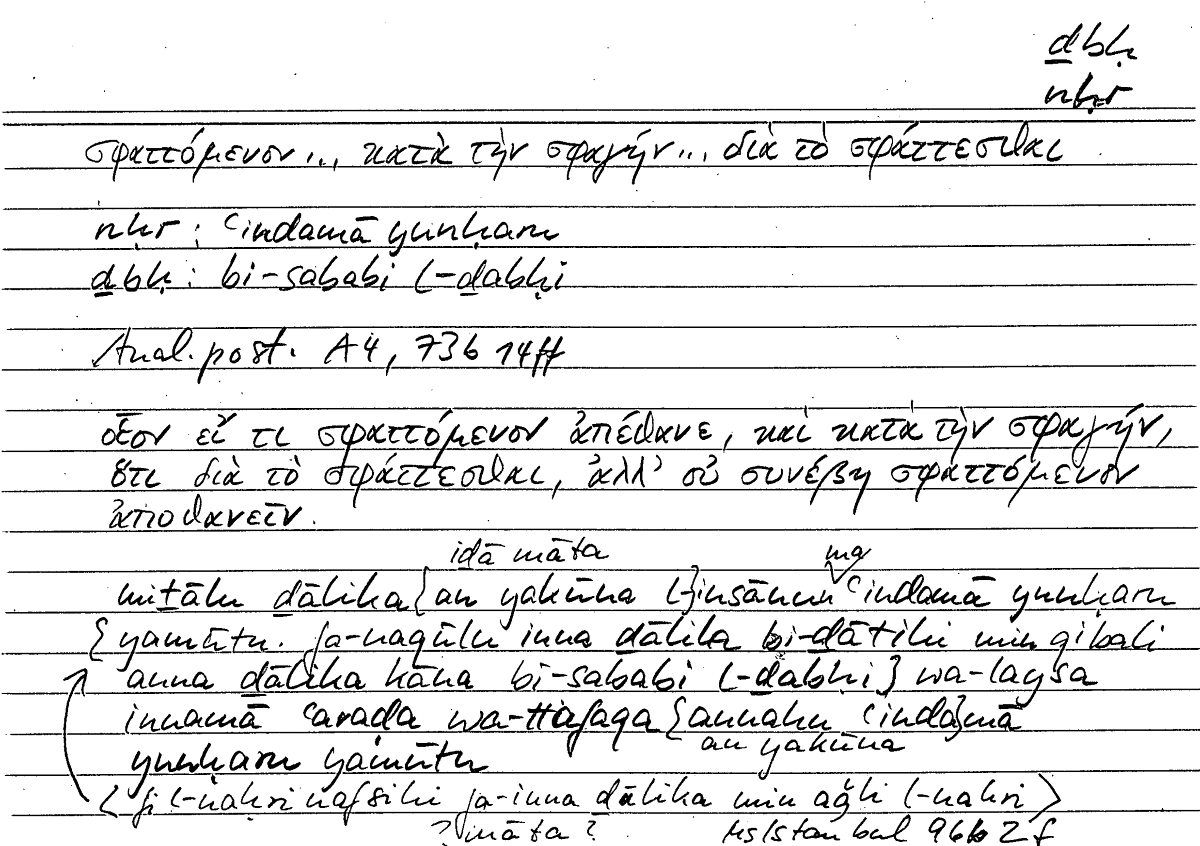 ḏbḥ
nḥr
σφαττόμενον..., κατὰ τὴν σφαγήν... διὰ τὸ σφάττεσθαι
nḥr : ʿindamā yunḥaru
ḏbḥ : bi-sababi l-ḏabḥi
Anal. post. A4, 73b 14ff
οἷον εἴ τι σφαττόμενον ἀπέθανε, καὶ κατὰ τὴν σφαγήν,
ὅτι διὰ τὸ σφάττεσθαι, ἀλλ' οὐ συνέβη σφαττόμενον
ἀποθανεῖν.
iḏā māta ma
miṯālu ḏālika {an yakūna l-}insānun ʿindamā yunḥaru
{yamūtu. fa-naqūlu inna ḏālika bi-ḏātihi min qibali
anna ḏālika kāna bi-sababi l-ḏabḥi} wa-laysa
innamā ʿaraḍa wa-ttafaqa {annahu ʿinda}mā
an yakūna
yunḥaru yamūtu
< fī l-naḥri nafsihi fa-inna ḏālika min aǧli l-naḥri >
? māta ? Ms Istanbul 966 2 f